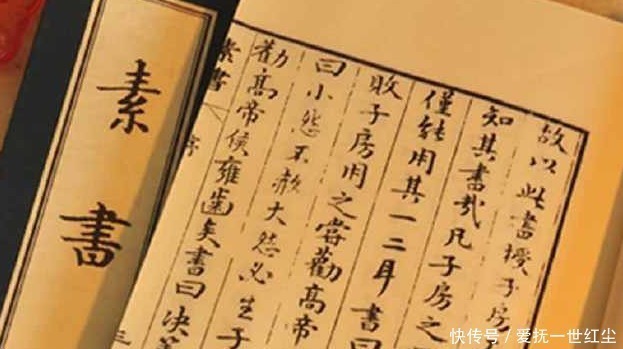 故以此書授子房
知其書哉凡子房之
僅能用其一二耳書曰
敗子房用之嘗勸高帝
曰小怨不赦大怨必生子
勸高帝侯雍齒矣書曰決
素書 序 三
素書
快传号/爱抚一世红尘